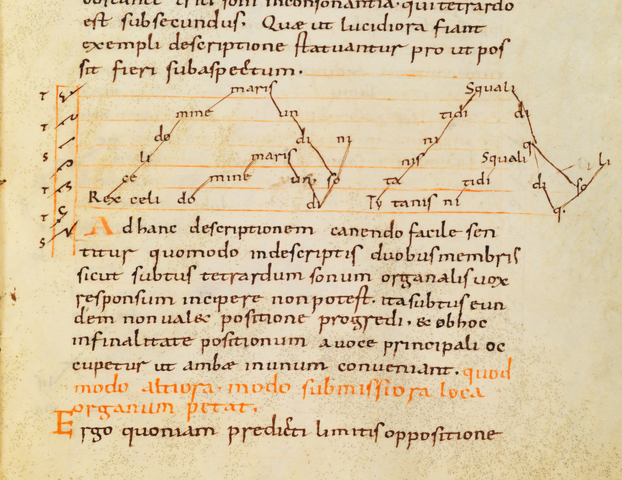 est subsecundus. Quæ ut lucidiora fiant
exempli descriptione statuantur pro ut pos
sit fieri subaspectum.
maris Squali
T mine un tidi di
T do di ni ni q
S li maris so nis Squali li
T ce mine un ta tidi di so
Rex celi do di Ty tanis ni q.
T
S
Ad hanc descriptionem canendo facile sen
titur quomodo indescriptis duobus membris
sicut subtus tetrardum sonum organalis uox
responsum incipere non potest. ita subtus eun
dem non ual& positione progredi. & ob hoc
in finalitate positionum a uoce principali oc
cupetur ut ambæ in unum conueniant. quod
modo altiora. modo submissiora loca
organum petat.
Ergo quoniam predicti limitis oppositione